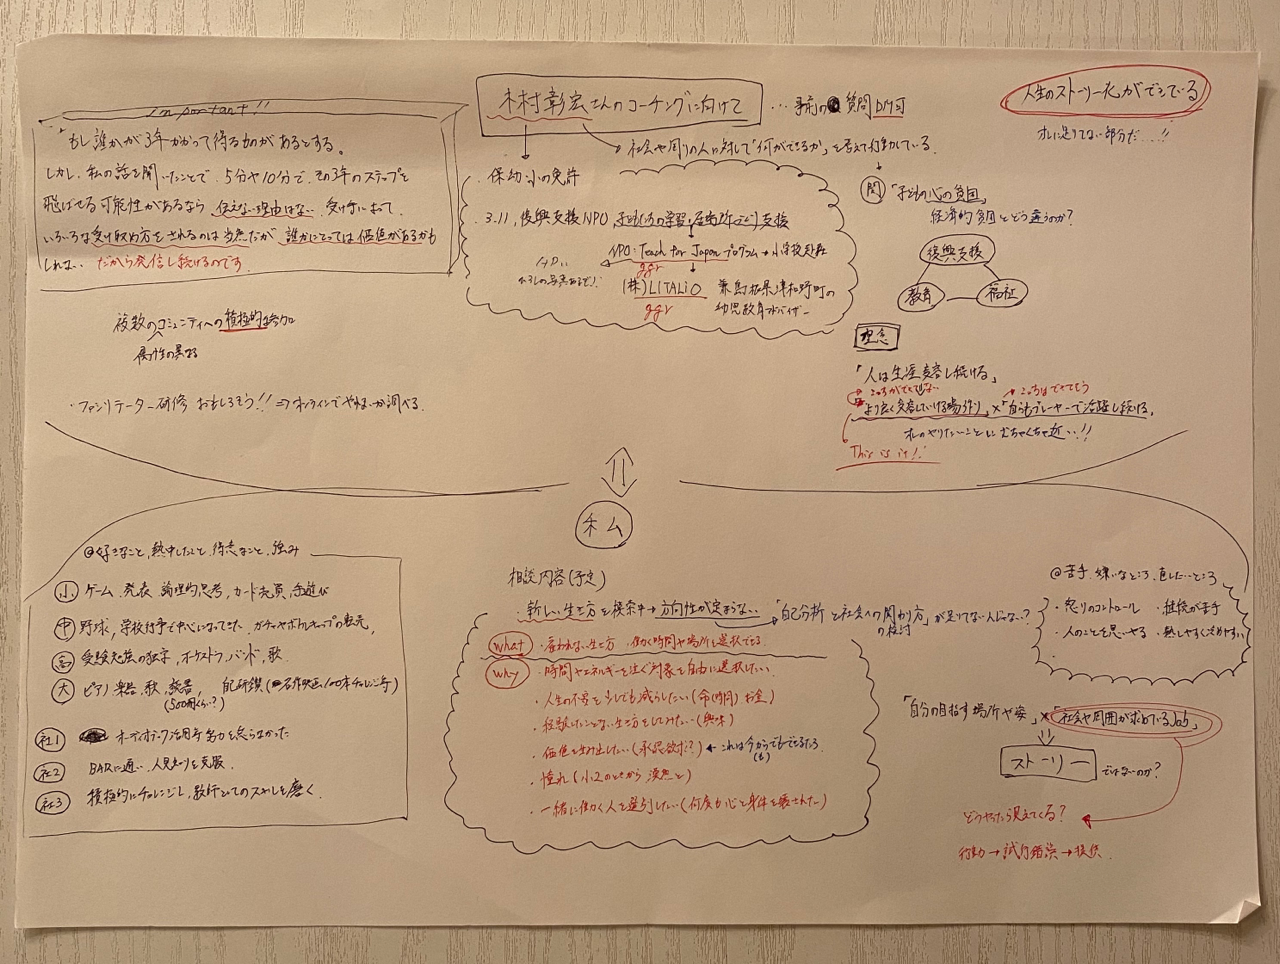 important!!
「もし誰かが3年かかって得るものがあるとする。
しかし、私の話を聞いたことで、5分や10分で、その3年のステップを
飛ばせる可能性があるなら、伝えない理由はない。受け手によって、
いろいろな受け取め方をされるのは当然だが、誰かにとっては価値があるかも
しれない。だから発信し続けるのです。
複数のコミュニティへの積極的な参加
属性の異なる
・ファシリテーター研修 おもしろそう!! ⇒オンラインでやれないか調べる。
木村彰宏さんのコーチングに向けて
… 事前の質問DM可
社会や周りの人に対して「何ができるか」を考えて行動している。
・保幼小の免許
・3.11,復興支援NPO,子どもたちの学習・居場所づくり支援
NPO:Teach for Japanプログラム→小学校赴任
ggr
HP
(株)LITALiO
ggr
兼島根県津和野町の
幼児教育アドバイザー
人生のストーリー化ができている
オレに足りてない部分だ…!!
問「子どもの心の貧困」
経済的貧困とどう違うのか?
復興支援
教育
福祉
理念
「人は生涯変容し続ける」
こっちができていない
こっちはできてそう
「より良く変容していける場作り」×「自らもプレーヤーで活躍し続ける」
オレのやりたいことにむちゃくちゃ近い…!!
This is it!!
私
@好きなこと、熱中したこと、得意なこと、強み
小 ゲーム、発表、論理的思考、カード売買、手遊び
中 野球、学校行事で中心になってた、ガチャやボトルキャップの転売、
高 受験勉強の独学、オーケストラ、バンド、歌
大 ピアノ、楽器、歌、読書、自己研鑽(名作映画100本チャレンジ等)
(500冊くらい?)
社1 オーディオブック活用で努力を怠らなかった
社2 BARに通い、人見知りを克服
社3 積極的にチャレンジし、教師としてのスキルを磨く。
相談内容(予定)
・新しい生き方を模索中→方向性が定まらない
「自己分析と社会への関わり方」が足りてないんじゃない?
の検討
what ・雇われない生き方 働く時間や場所を選択できる
why ・時間やエネルギーを注ぐ対象を自由に選択したい
・人生の不安を少しでも減らしたい(命(時間) お金)
・経験したことない生き方をしてみたい(興味)
・価値を生み出したい(承認欲求??) ← これは今からでもできるだろ
・憧れ(小2のときから漠然と)
・一緒に働く人を選別したい(何度か心と身体を壊された)
@苦手、嫌いなところ、直したいところ
・怒りのコントロール
・継続が苦手
・人のことを思いやる
・熱しやすく冷めやすい
「自分の目指す場所や姿」×「社会や周囲が求めているJob」
ストーリー ではないのか?
どうやったら見えてくる?
行動→試行錯誤→提供